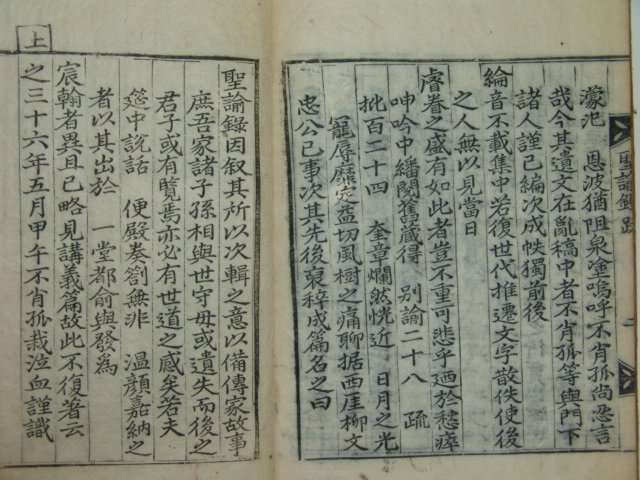 濛汜　恩波猶阻泉塗嗚呼不肖孤尚忍言
哉今其遺文在亂稿中者不肖孤等與門下
諸人謹已編次成帙獨前後
綸音不載集中若復世代推遷文字散佚使後
之人無以見當日
睿眷之盛有如此者豈不重可悲乎迺於愁瘁
呻吟中繙閱舊藏得　別諭二十八　疏
批百二十四　奎章爛然恍近　日月之光
寵辱靡定益切風樹之痛聊据西厓柳文
忠公己事次其先後裒稡成篇名之曰
聖諭錄跋
二
聖諭錄因叙其所以次輯之意以備傳家故事
庶吾家諸子孫相與世守毋或遺失而後之
君子或有覽焉亦必有世道之感矣若夫
筵中說話　便殿奏劄無非　溫顔嘉納之
者以其出於　一堂都俞與發爲
宸翰者異且已略見講義篇故此不復著云
之三十六年五月甲午不肖孤栽泣血謹識
上